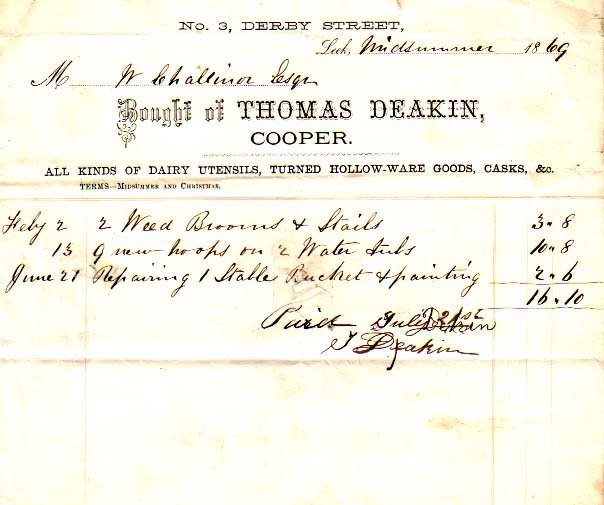 No. 3, DERBY STREET,
Leek, Midsummer 1869
M W Challinor Esqr
Bought of THOMAS DEAKIN,
COOPER.
ALL KINDS OF DAIRY UTENSILS, TURNED HOLLOW-WARE GOODS, CASKS, &c.
TERMS—MIDSUMMER AND CHRISTMAS.
Feby 2 2 Weed Brooms & Stails 3 " 8
13 9 new hoops on 2 Water tubs 10 " 8
June 21 Repairing 1 Stable Bucket & painting 2 " 6
16 " 10
Paid July 21st
T Deakin